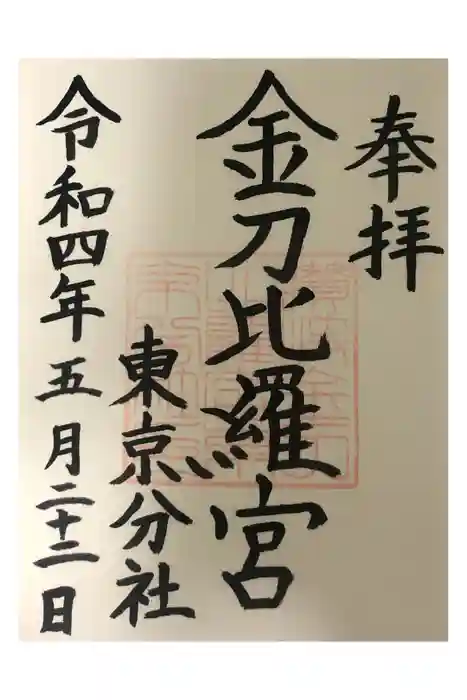 奉拝
金刀比羅宮
東京分社
令和四年五月二十二日